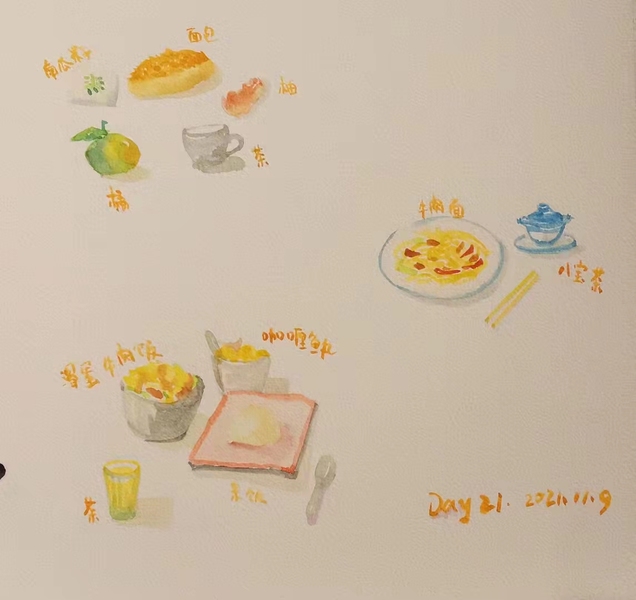 面包
南瓜籽
柚
茶
橘
牛肉面
八宝茶
咖喱鱼丸
滑蛋牛肉饭
米饭
茶
Day 21. 2021.11.9